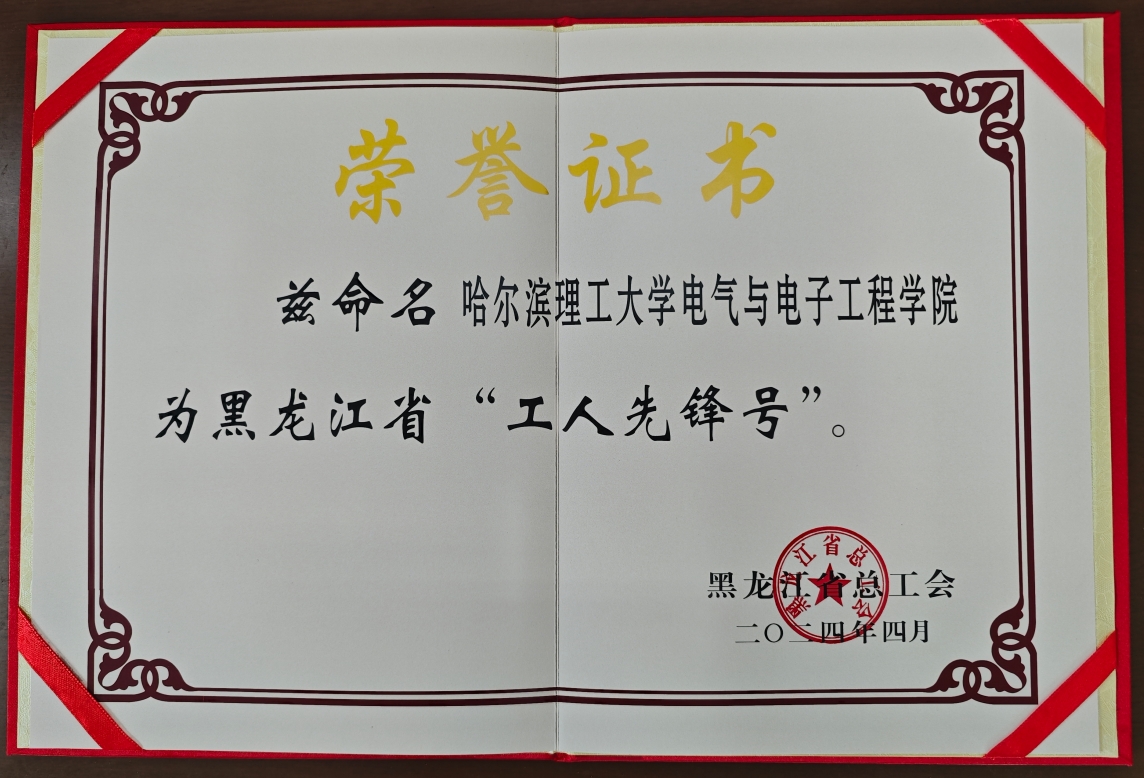 荣誉证书
兹命名 哈尔滨理工大学电气与电子工程学院
为黑龙江省“工人先锋号”。
黑龙江省总工会
二〇二四年四月
黑龙江省总工会